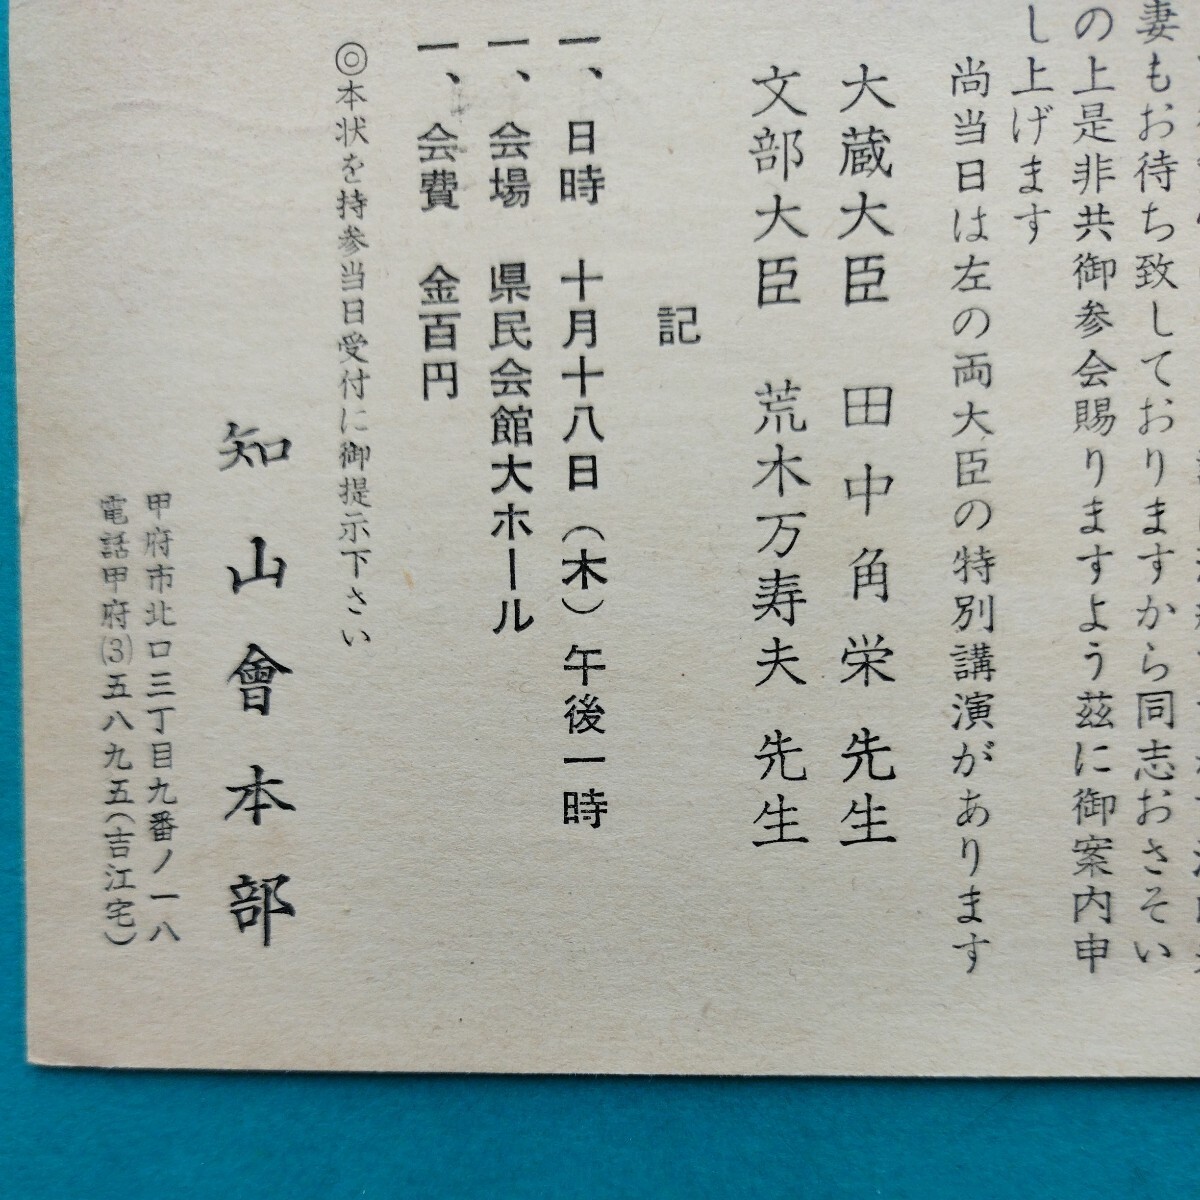 妻もお待ち致しておりますから同志おさそい
の上是非共御参会賜りますよう茲に御案内申
し上げます
尚当日は左の両大臣の特別講演があります
大蔵大臣 田中角栄 先生
文部大臣 荒木万寿夫 先生
記
一、日時 十月十八日(木)午後一時
一、会場 県民会館大ホール
一、会費 金百円
◎本状を持参当日受付に御提示下さい
知山會本部
甲府市北口三丁目九番ノ一八
電話甲府(3)五八九五(吉江宅)